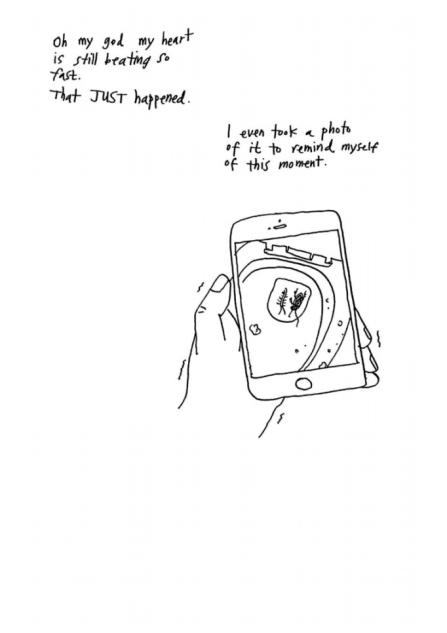 Oh my god my heart
is still beating so
fast.
That JUST happened.
I even took a photo
of it to remind myself
of this moment.